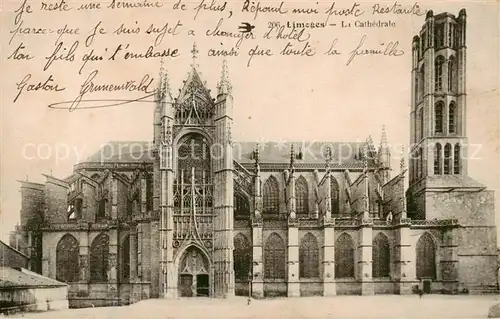 Je reste une semaine de plus, Répond moi Poste Restante
parce que je suis sujet a changer d'hotel
ton fils qui t'embrasse ainsi que toute la famille
Gaston Grunenwald
206 Limoges - La Cathédrale
delcampe